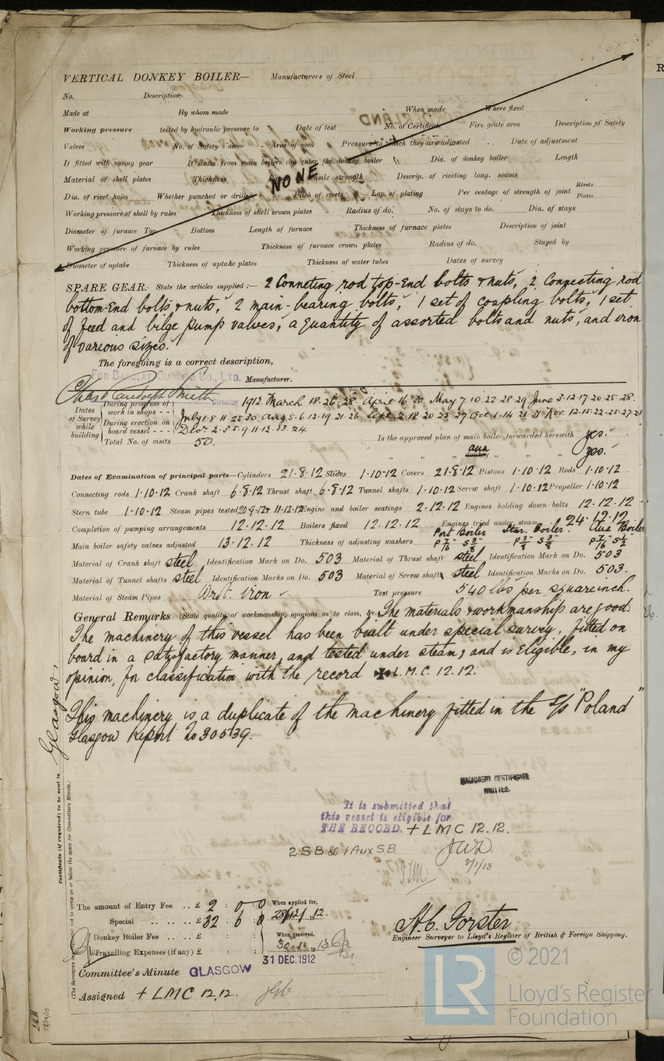 VERTICAL DONKEY BOILER— Manufacturers of Steel
No. Description
Made at By whom made When made Where fixed
Working pressure tested by hydraulic pressure to Date of test No. of Certificate Fire grate area Description of Safety
Valves No. of Safety Valves Area of each Pressure to which they are adjusted Date of adjustment
If fitted with easing gear If steam from main boilers can enter the donkey boiler Dia. of donkey boiler Length
Material of shell plates Thickness tensile strength Descrip. of riveting long. seams
NONE
Dia. of rivet holes Whether punched or drilled Pitch of rivets Lap of plating Per centage of strength of joint Rivets Plates
Working pressure of shell by rules Thickness of shell crown plates Radius of do. No. of stays to do. Dia. of stays
Diameter of furnace Top Bottom Length of furnace Thickness of furnace plates Description of joint
Working pressure of furnace by rules Thickness of furnace crown plates Radius of do. Stayed by
Diameter of uptake Thickness of uptake plates Thickness of water tubes Dates of survey
SPARE GEAR. State the articles supplied :— 2 Conneting rod top-End bolts & nuts, 2 Connecting rod
bottom-End bolts & nuts, 2 main-bearing bolts, 1 set of coupling bolts, 1 set
of feed and bilge pump valves, a quantity of assorted bolts and nuts, and iron
of various sizes.
The foregoing is a correct description,
FOR BARCLAY, CURLE & CO., LTD. Manufacturer.
Director
Dates of Survey while building
During progress of work in shops - - 1912. March 18. 26. 28 April 16. May 7. 10. 22. 28. 29. June 3. 12. 17. 20. 25. 28.
During erection on board vessel - - -
Total No. of visits 50. Is the approved plan of main boiler forwarded herewith yes.
" " " aux " " " yes.
Dates of Examination of principal parts—Cylinders 21.8.12 Slides 1.10.12 Covers 21.8.12 Pistons 1.10.12 Rods 1.10.12
Connecting rods 1.10.12 Crank shaft 6.8.12 Thrust shaft 6.8.12 Tunnel shafts 1.10.12 Screw shaft 1.10.12 Propeller 1.10.12
Stern tube 1.10.12 Steam pipes tested Engine and boiler seatings 2.12.12 Engines holding down bolts 12.12.12
Completion of pumping arrangements 12.12.12 Boilers fixed 12.12.12 Engines tried under steam 24.12.12
Port Boiler Star. Boiler Aux Boiler
Main boiler safety valves adjusted 13.12.12 Thickness of adjusting washers
Material of Crank shaft steel Identification Mark on Do. 503 Material of Thrust shaft steel Identification Mark on Do. 503
Material of Tunnel shafts steel Identification Marks on Do. 503 Material of Screw shafts steel Identification Marks on Do. 503.
Material of Steam Pipes Wrot. iron - Test pressure 540 lbs per square inch.
General Remarks (State quality of workmanship, opinions as to class, &c. The materials & workmanship are good.
The machinery of this vessel has been built under special survey, fitted on
board in a satisfactory manner, and tested under steam, and is Eligible, in my
opinion, for classification with the record ✠ L.M.C. 12.12.
This machinery is a duplicate of the machinery fitted in the S/S "Poland"
Glasgow Report No 30539.
Glasgow
Certificate (if required) to be sent to
MACHINERY CERTIFICATE
WRITTEN.
It is submitted that
this vessel is eligible for
THE RECORD. + LMC 12.12.
2 SB & 1 Aux SB.
The amount of Entry Fee .. £ 2 : 0 : 0 When applied for,
Special .. .. .. £ 32 : 6 : 0
Donkey Boiler Fee .. .. £ When received,
Travelling Expenses (if any) £
31 DEC. 1912
A.C. Forster
Engineer Surveyor to Lloyd's Register of British & Foreign Shipping.
Committee's Minute GLASGOW
Assigned + LMC 12.12.
LR © 2021
Lloyd's Register
Foundation